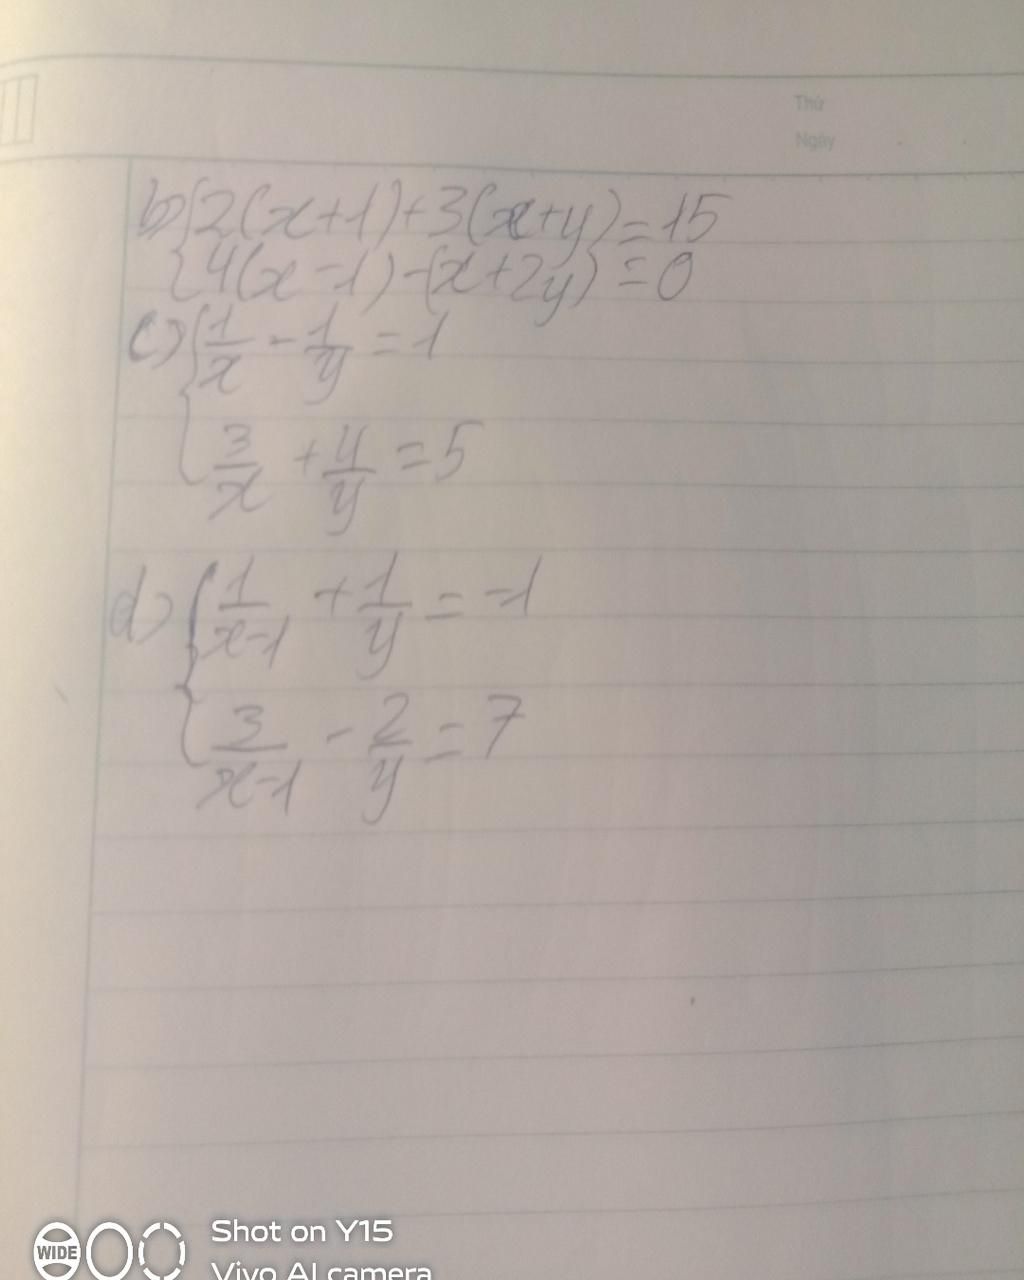 Thứ
Ngày
b) { 2(x+1)+3(x+y)=15
4(x-1)-(x+2y)=0
c) { 1/x - 1/y = 1
3/x + 4/y = 5
d) { 1/(x-1) + 1/y = -1
3/(x-1) - 2/y = 7
WIDE
Shot on Y15
Vivo AI camera